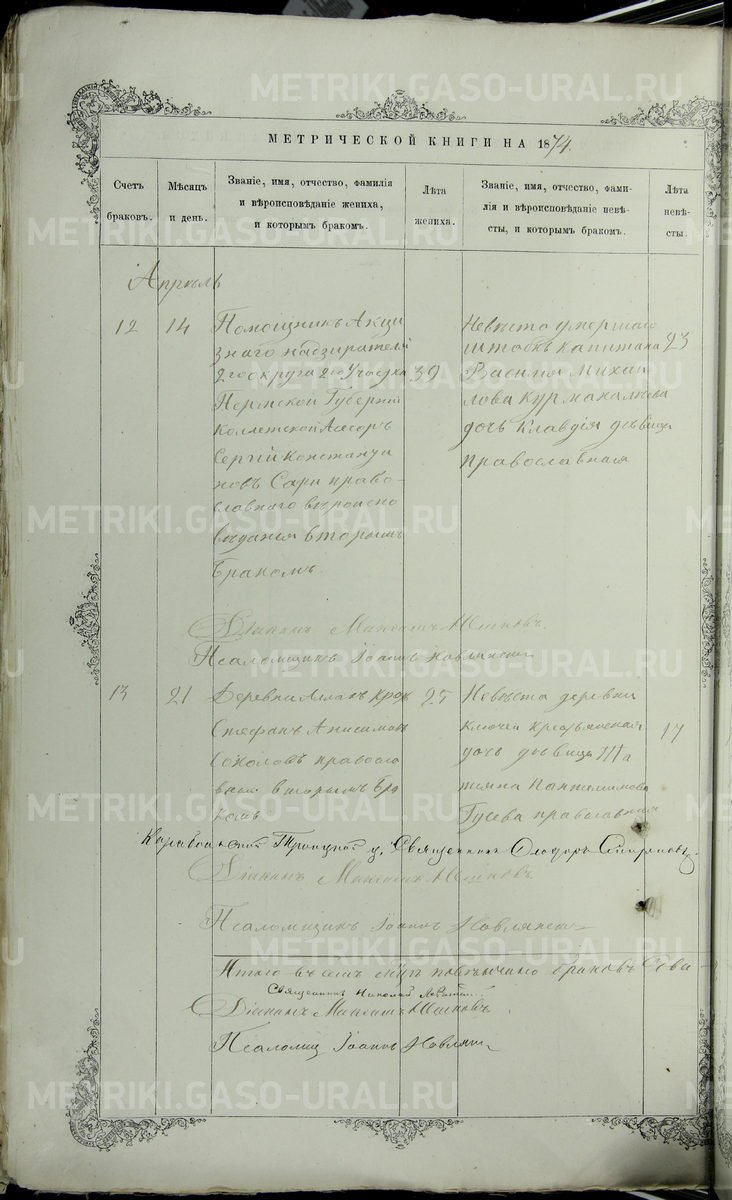 МЕТРИЧЕСКОЙ КНИГИ НА 1874.
Счетъ браковъ.
Мѣсяцъ и день.
Званіе, имя, отчество, фамилія
и вѣроисповѣданіе жениха,
и которымъ бракомъ.
Лѣта жениха.
Званіе, имя, отчество, фами-
лія и вѣроисповѣданіе невѣ-
сты, и которымъ бракомъ.
Лѣта невѣ-
сты.
Апрѣль
12
14
Помощникъ Акци
знаго надзирателя
2го округа 2го Участка
Пермской Губерніи
Коллежской Асесоръ
Сергій Константи
новъ Сари право-
славнаго вѣроиспо
вѣданія вторымъ
бракомъ.
39
Невѣста умершаго
штабсъ капитана
Василія Михаи
лова Курманалѣева
дочь Клавдія дѣвица
православная
23
Діаконъ Максимъ
Псаломщикъ Іоаннъ
13
21
Деревни
Стефанъ Анисимовъ
Соколовъ правосла
вный вторымъ бра
комъ
25
Невѣста деревни
Ключей крестьянская
дочь дѣвица Та
тьяна Пантелимонова
Гусева православная
17
Троицкой ц. Священникъ Ѳеодоръ Смирновъ.
Діаконъ Максимъ
Псаломщикъ Іоаннъ
Итого повѣнчано браковъ два
Священникъ Николай
Діаконъ Максимъ
Псаломщ Іоаннъ
METRIKI.GASO-URAL.RU